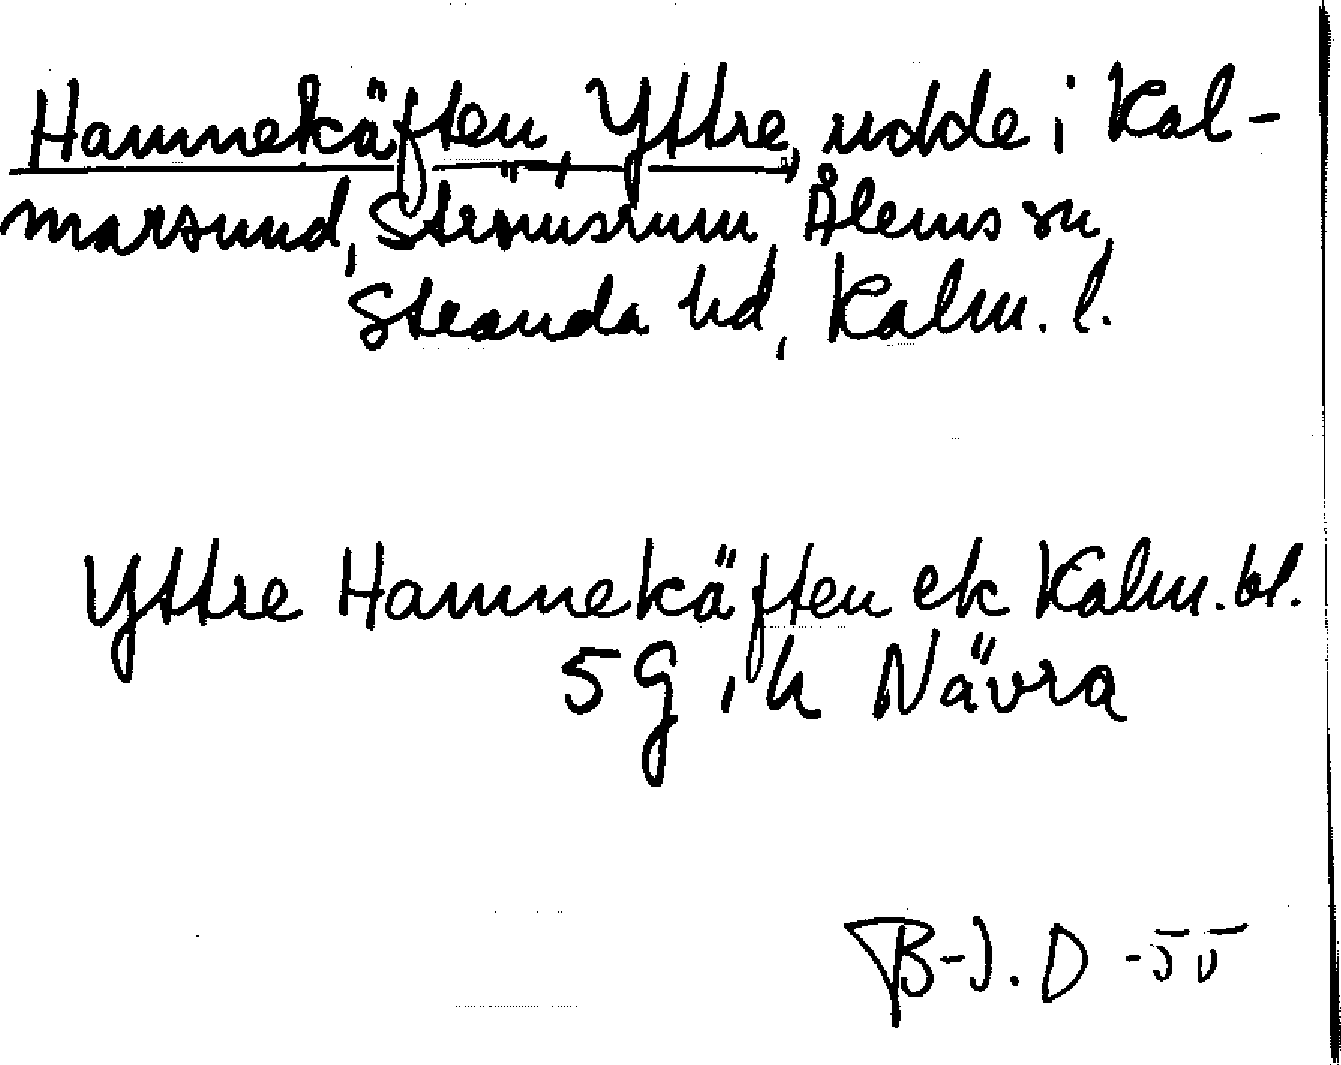 Hamnekäften, Yttre, udde i Kal-
marsund, Strömsrum, Ålems sn,
Stranda hd, Kalm. l.
Yttre Hamnekäften ek Kalm. bl.
5 G, h Nävra
B-J. D -55